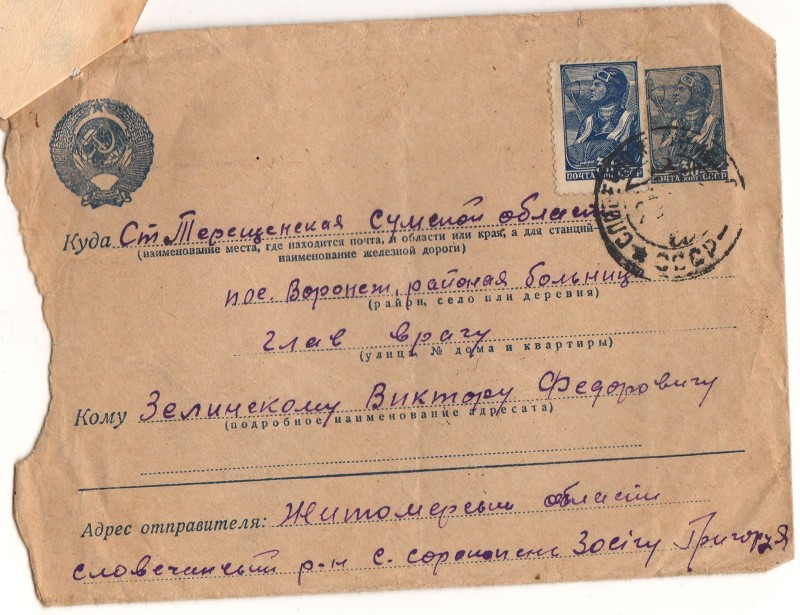 ПОЧТА СССР
30 КОП
ПОЧТА СССР
СССР
Куда Ст. Терещенская Сумской области
(наименование места, где находится почта, и области или края, а для станций—
наименование железной дороги)
пос. Воронеж, районая больниц
(район, село или деревня)
глав врачу
(улица, № дома и квартиры)
Кому Зелинскому Виктору Федоровичу
(подробное наименование адресата)
Адрес отправителя: области
р-н с. Зосігу